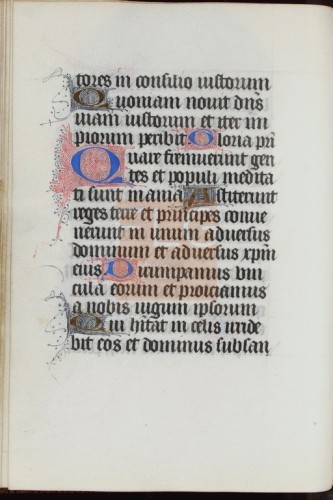 tores in consilio iustorum
Quoniam novit dns
viam iustorum et iter im
piorum peribit Gloria pri
Quare fremuerunt gen
tes et populi medita
ti sunt inania Astiterunt
reges terre et principes conve
nerunt in unum adversus
dominum et adversus xpm
eius Dirumpamus vin
cula eorum et proiciamus
a nobis iugum ipsorum
Qui hitat in celis irride
bit eos et dominus subsan